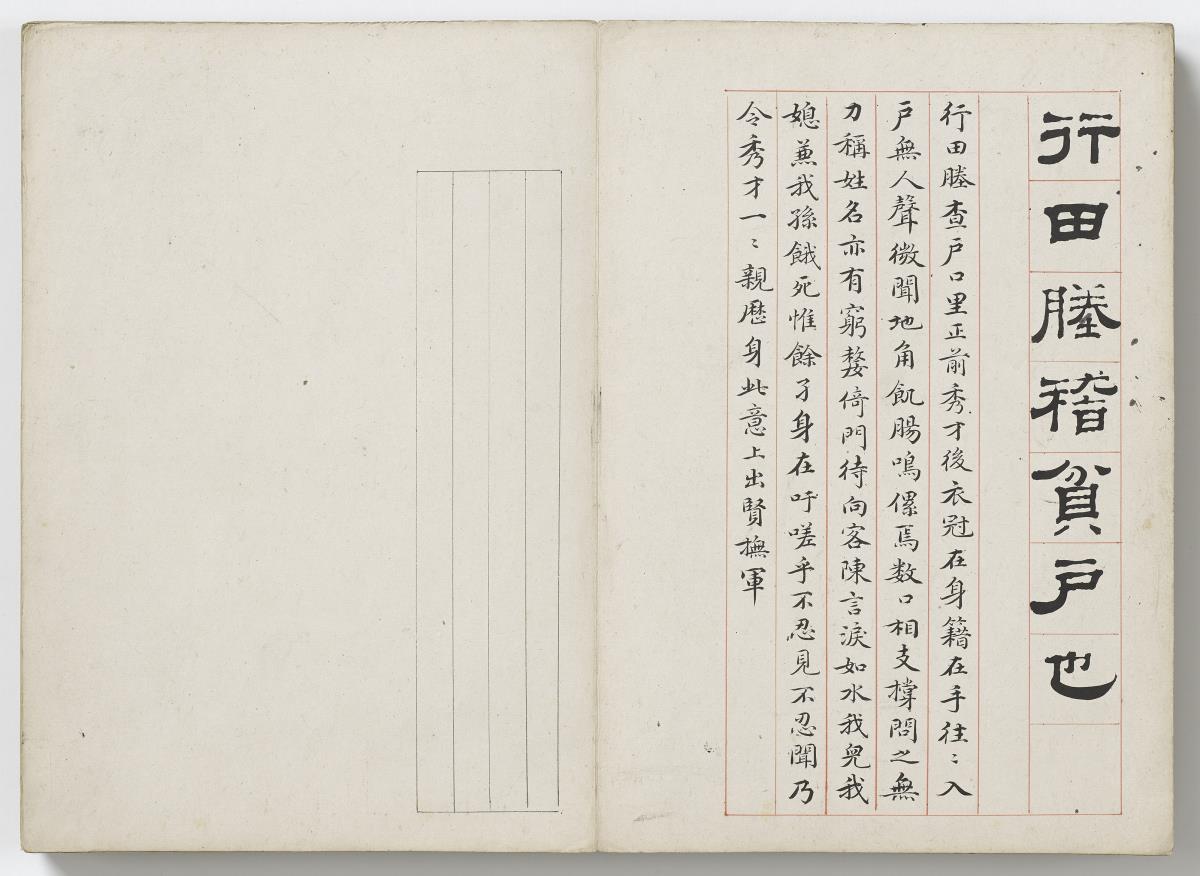 行田塍稽貧戶也
行田塍查戶口里正前秀才後衣冠在身籍在手往〻入
戶無人聲微聞地角飢腸鳴傫焉数口相支撐問之無
力稱姓名亦有窮嫠倚門待向客陳言淚如水我兒我
媳兼我孫餓死惟餘孑身在吁嗟乎不忍見不忍聞乃
令秀才一〻親歷身此意上出賢撫軍